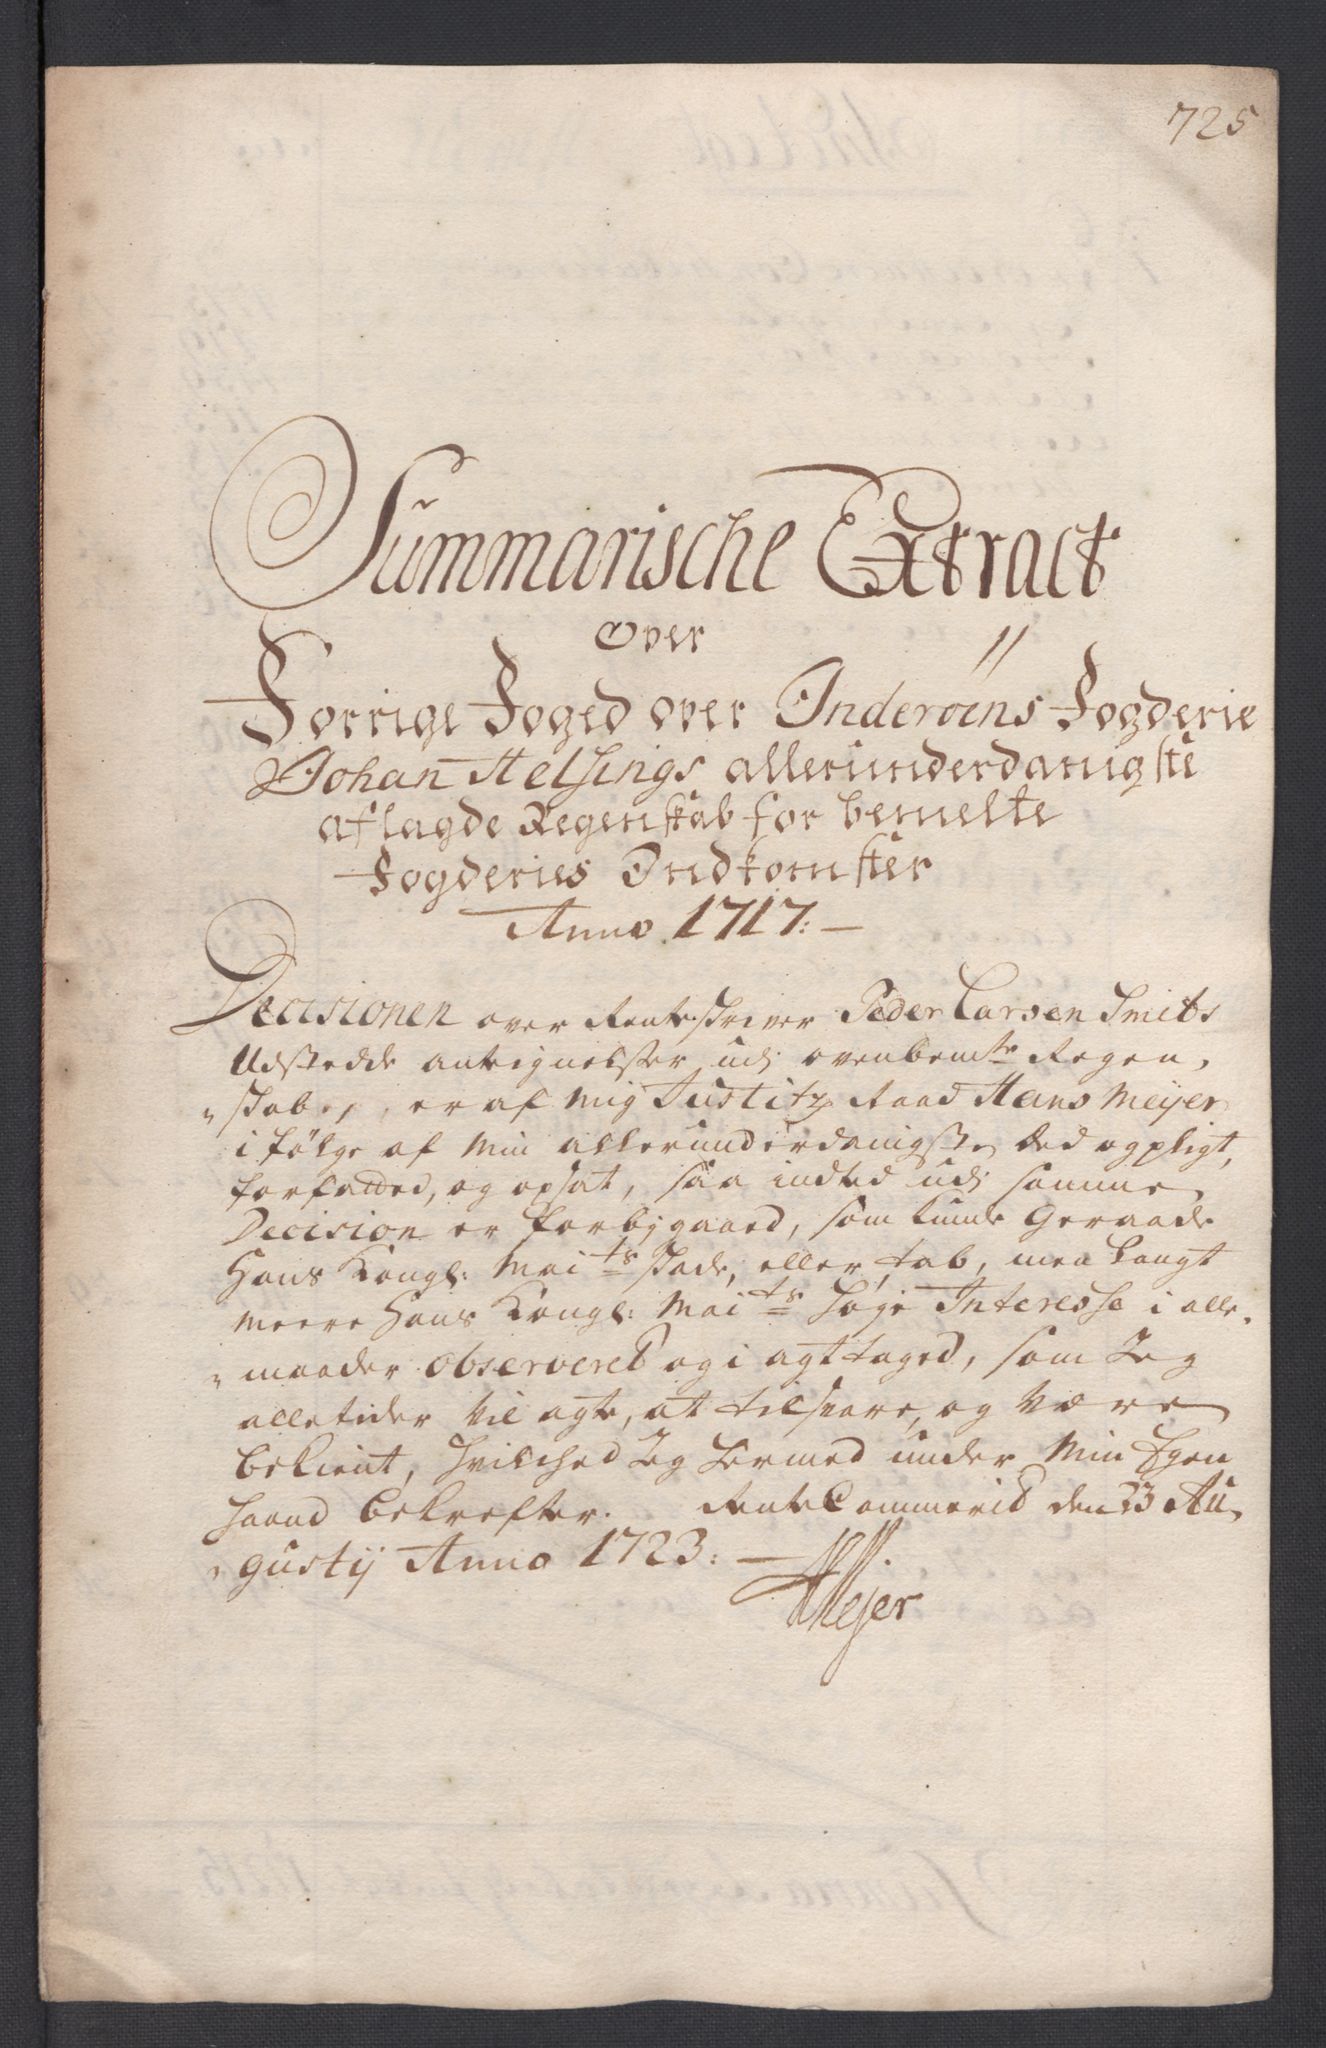 725
Summarische Extract
Over
Forrige Foged over Inderöens Fogderie
Johan Helsings allerunderdanigste
aflagde Regenskab for bemelte
Fogderies Indkomster
Anno 1717:
Decisionen over Renteskriver Peder Larsen Smits
Udstedde antegnelsser udj ovenbemte Regen,
„skaber, er af mig Justitz Raad Hans Meyer
i følge af min allerunderdanigste Eed og pligt,
forfatted, og opsat, saa indted udj samme
Decision er forbigaaed, som kunde Geraade
Hans Kongl: Maits skade, eller tab, men langt
meere Hans Kongl: Maits høje Interesse i alle,
„maader observeret og i agt taged, som Jeg
alletider vil agte, at tilsvare, og være
bekient, hvilched Jeg hermed under Min Egen
haand bekrefter. RenteCammerid den 23 Au,
„gustij Anno 1723:
HMejer